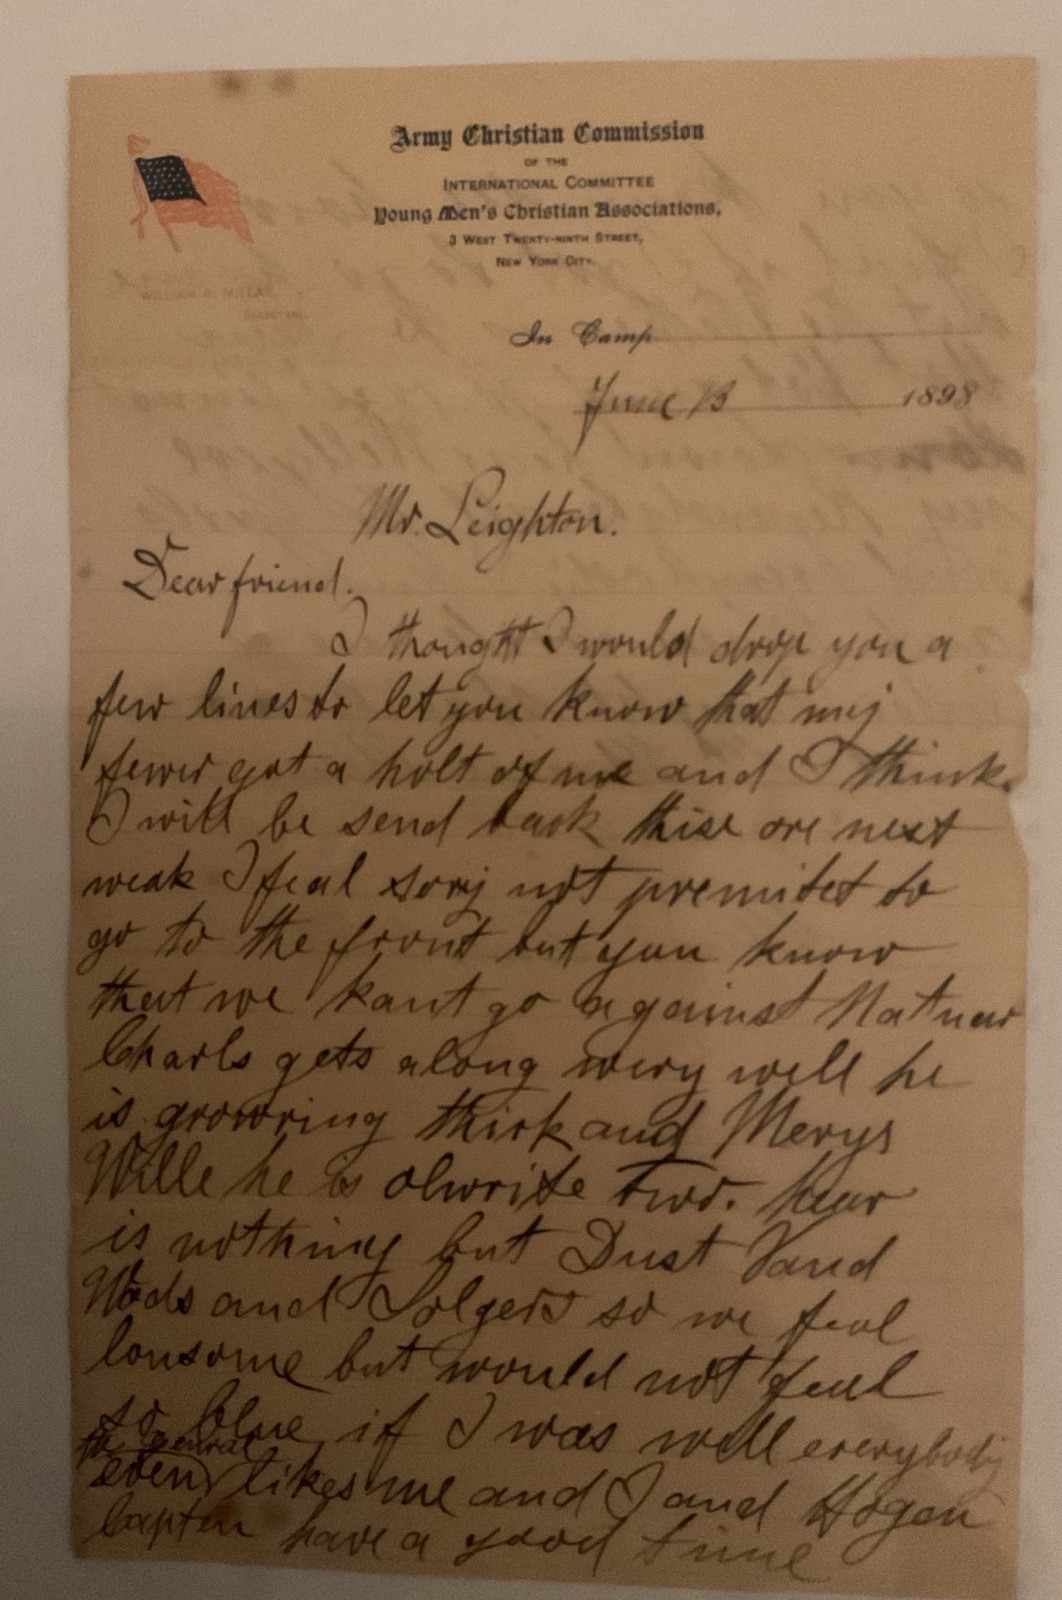 Army Christian Commission
OF THE
INTERNATIONAL COMMITTEE
Young Men's Christian Associations,
3 WEST TWENTY-NINTH STREET,
NEW YORK CITY.
WILLIAM B. MILLAR,
In Camp
June 13 1898
Mr. Leighton.
Dear friend.
I thought I would drop you a
few lines to let you know that mij
fewer got a holt of me and I think
I will be send back thise ore next
weak I feal sorij not premitet to
go to the front but you know
that we kant go against Natuar
Charls gets along wery well he
is growring thick and Merys
Wille he is olwrite two. hear
is nothing but Dust Sand
Wods and Solgers so we feal
lonsome but would not feal
so blue if I was well everybodij
the general
even likes me and I and Hogan
Capten have a good time